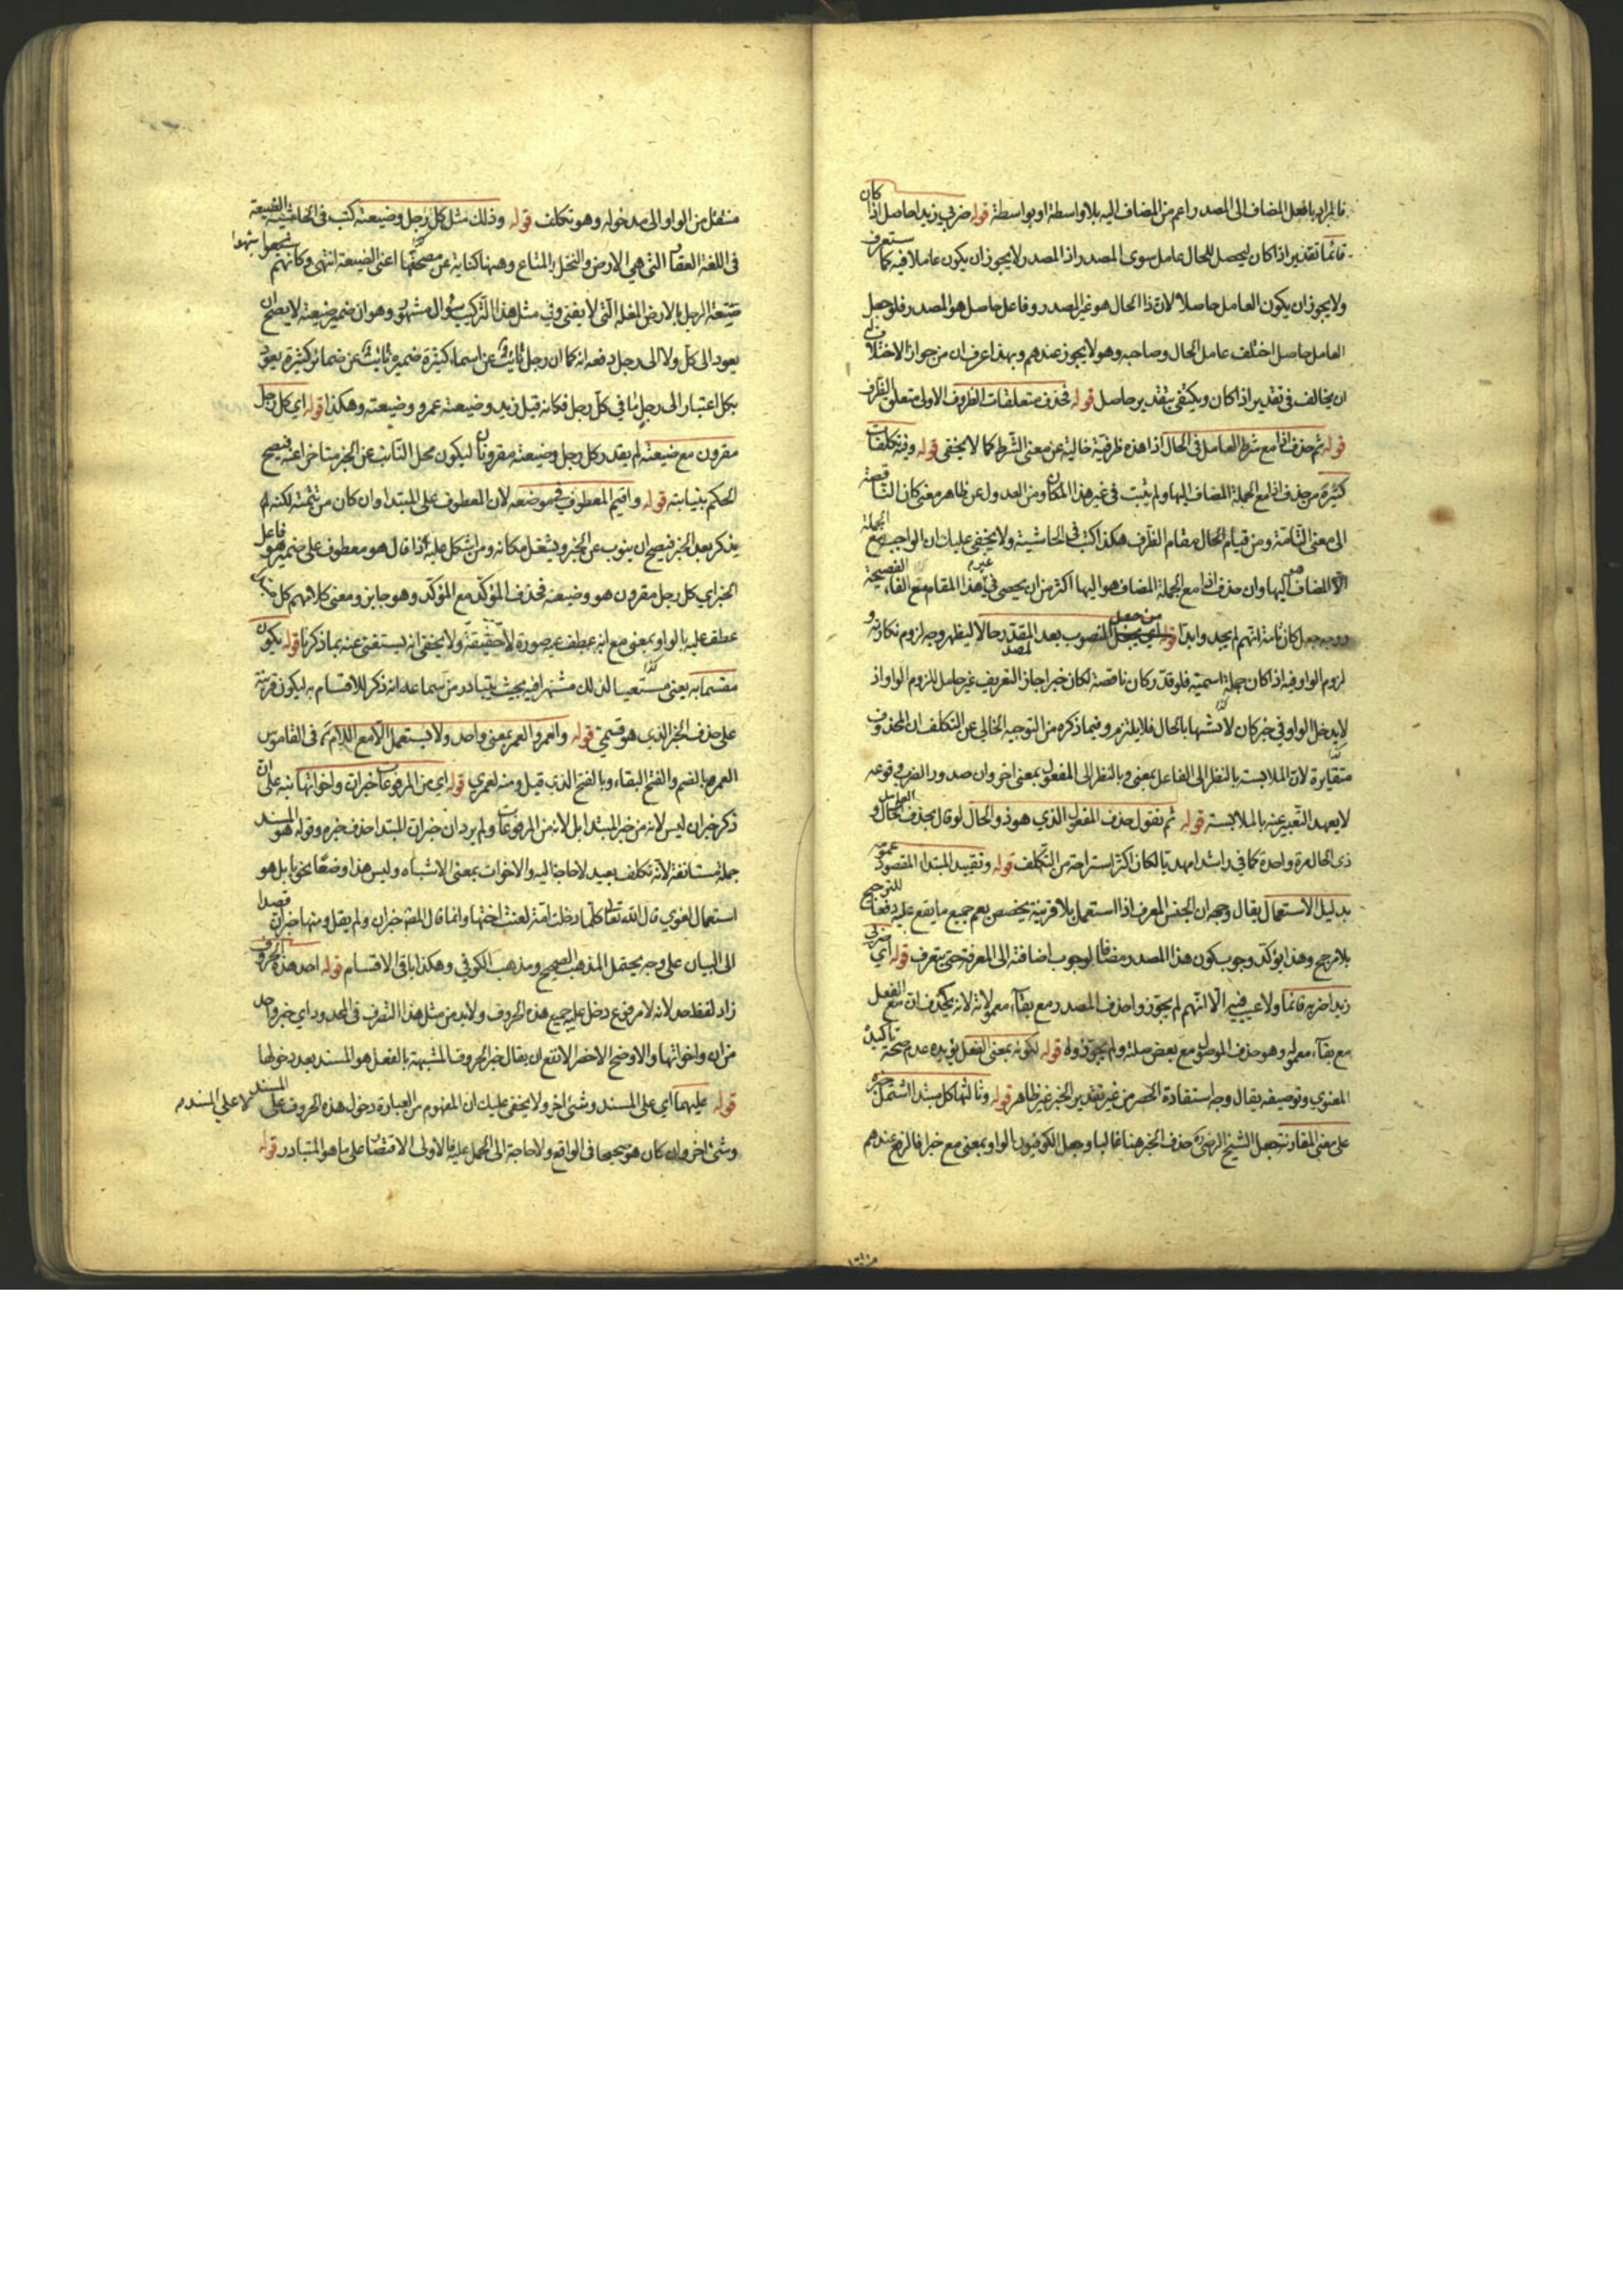 فالمراد بالفعل المضاف الى المصدر اعم من المضاف اليه بلا واسطة او بواسطة قوله ضربي زيدا حاصل اذا كان
قائما تقدير اذا كان ليحصل للحال عامل سوى المصدر اذ المصدر لا يجوز ان يكون عاملا فيه كما ستعرف
ولا يجوز ان يكون العامل حاصلا لان ذا الحال هو غير المصدر وفاعل حاصل هو المصدر فلو جعل
العامل حاصل اختلف عامل الحال وصاحبه وهو لا يجوز عندهم وبهذا عرف ان من جواز الاختلاف
ان يخالف في تقدير اذا كان ويكتفي بتقدير حاصل قوله فحذف متعلقات الظروف الاولى متعلق الظرف
قوله ثم حذف اذا مع شرطه العامل في الحال اذا هذه ظرفية خالية عن معنى الشرط كما لا يخفى قوله وفيه تكلفات
كثيرة من حذف اذا مع الجملة المضاف اليها ولم يثبت في غير هذا المكان ومن العدول عن ظاهر معنى كان الناقصة
الى معنى التامة ومن قيام الحال مقام الظرف هكذا كتب في الحاشية ولا يخفى عليك ان الواجب مع الجملة
المضاف هو اليها وان حذف اذا مع الجملة المضاف هو اليها اكثر من ان يحصى في غير هذا المقام مع الفاء الفصيحة
ووجه جعل كان تامة انهم لم يجدوا بدا من جعل المنصوب بعد المقدر حالا ليظهر وجه لزوم نكارته و
لزوم الواو فيه اذا كان جملة اسمية فلو قدر كان ناقصة لكان خبرا جاز التعريف غير حامل للزوم الواو اذ
لا يدخل الواو في خبر كان الا تشبها بالحال فلا يلتزم وفيما ذكره من التوجيه الخالي عن التكلف ان المحذوف
متقايرة لان الملابسة بالنظر الى الفاعل بمعنى وبالنظر الى المفعول بمعنى اخر وان صدور الضرب وقوعه
لا يعهد التعبير عنه بالملابسة قوله ثم نقول حذف المفعول الذي هو ذو الحال لو قال بحذف العامل الحال و
ذى الحال مرة واحدة كما في راشدا مهديا لكان اكثر استراحة من التكلف قوله وتقييد المبتدا المقصود عمومه
بدليل الاستعمال يقال وجهه ان الجنس المعرف اذا استعمل بلا قرينة يخصص يعم جميع ما يقع عليه دفعا للترجيح
بلا مرجح وهذا يؤكد وجوب كون هذا المصدر مضافا لوجوب اضافته الى المعرفة حتى يتعرف قوله اي ضربي
زيدا ضربه قائما ولا عيب فيه الا انهم لم يجوزوا حذف المصدر مع بقاء معموله لانه يحذف ان مع الفعل
مع بقاء معموله وهو حذف الموصول مع بعض صلته ولم يجوزوه قوله لكونه بمعنى الفعل يؤيده عدم صحة تاكيده
المعنوي وتوصيفه يقال وجه استفادة الحصر من غير تقدير الخبر غير ظاهر قوله وثالثها كل مبتدا اشتمل خبره
على معنى المقارنة جعل الشيخ الرضي حذف الخبر هنا غالبا وجعل الكوفيون الواو بمعنى مع خبرا فالرفع عندهم
منتقل من الواو الى مدخوله وهو تكلف قوله وذلك مثل كل رجل وضيعته كتب في الحاشية الضيعة
في اللغة العقار التي هي الارض والنخل والمتاع وههنا كناية عن اعنى الضيعة انتهى وكانهم
ضيعة الرجل بالارض المغلة التي لا يفنى وفي مثل هذا التركيب سؤال مشهور وهو ان ضمير ضيعته لا يصح ان
يعود الى كل ولا الى رجل دفعه انه كما ان رجل نائب عن اسماء كثيرة ضميره نائب عن ضمائر كثيرة يعود
بكل اعتبار الى رجل ما في كل رجل فكانه قيل زيد وضيعته عمرو وضيعته وهكذا قوله اي كل رجل
مقرون مع ضيعته لم يقدر كل رجل وضيعته مقرونان ليكون محل النائب عن الخبر متاخرا عنه فيصح
الحكم بنيابته قوله واقيم المعطوف في موضعه لان المعطوف على المبتدا وان كان من تتمته لكنه لم
يذكر بعد الخبر فيصح ان ينوب عن الخبر ويشغل مكانه ومن اشكل عليه اذا قال هو معطوف على ضمير هو فاعل
الخبر اي كل رجل مقرون هو وضيعته فحذف المؤكد مع المؤكد وهو جايز ومعنى كلامهم كل ما
عطف عليه بالواو بمعنى مع انه عطف عليه صورة لا حقيقة ولا يخفى انه يستغنى عنه بما ذكرنا قوله يكون
مقسما به يعنى مستعينا لذلك مشتهرا فيه بحيث يتبادر من سماعه انه ذكر للاقسام به ليكون قرينة
على حذف الخبر الذي هو قسمي قوله والعمر والعمر بمعنى واحد ولا يستعمل الا مع اللام ثم في القاموس
العمر بالضم والفتح البقاء وبالفتح الذي قيل ومنه لعمري قوله اي من المرفوعات خبر ان واخواتها نبه على ان
ذكر خبر ان ليس لانه من خبر المبتدا بل لانه من المرفوعات ولم يرد ان خبر ان المبتدا حذف خبره وقوله هو المسند
جملة مستانفة لانه تكلف بعيد لا حاجة اليه والاخوات بمعنى الاشباه وليس هذا وضعا نحويا بل هو
استعمال لغوي قال الله تعالى كلما دخلت امة لعنت اختها وانما قال المص خبر ان ولم يقل ومنها خبر ان قصدا
الى البيان على وجه يحتمل المذهب الصحيح ومذهب الكوفي وهكذا باقي الاقسام قوله احد هذه الحروف
زاد لفظ احد لانه لا مرفوع دخل عليه جميع هذه الحروف ولا بد من مثل هذا التصرف في المحدود اي خبر واحد
من ان واخواتها والاوضح الاخصر الانفع ان يقال خبر الحروف المشبهة بالفعل هو المسند بعد دخولها
قوله عليهما اي على المسند وشئ اخر ولا يخفى عليك ان المفهوم من العبارة دخول هذه الحروف على المسند لا على المسند
وشئ اخر وان كان هو صحيحا في الواقع ولا حاجة الى الحمل عليه فالاولى الاقتصار على ما هو المتبادر قوله